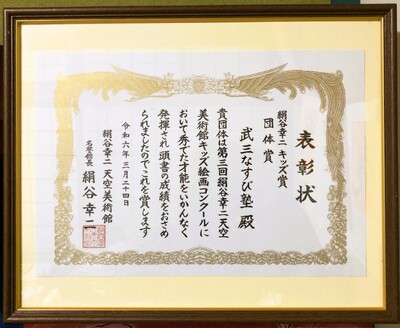 表彰状
絹谷幸二 キッズ賞
団体賞
武三なすび塾 殿
貴団体は第三回絹谷幸二天空
美術館キッズ絵画コンクールに
おいて秀でた才能をいかんなく
発揮され頭書の成績をおさめ
られましたのでこれを賞します
令和六年三月二十四日
絹谷幸二 天空美術館
名誉館長 絹谷幸二